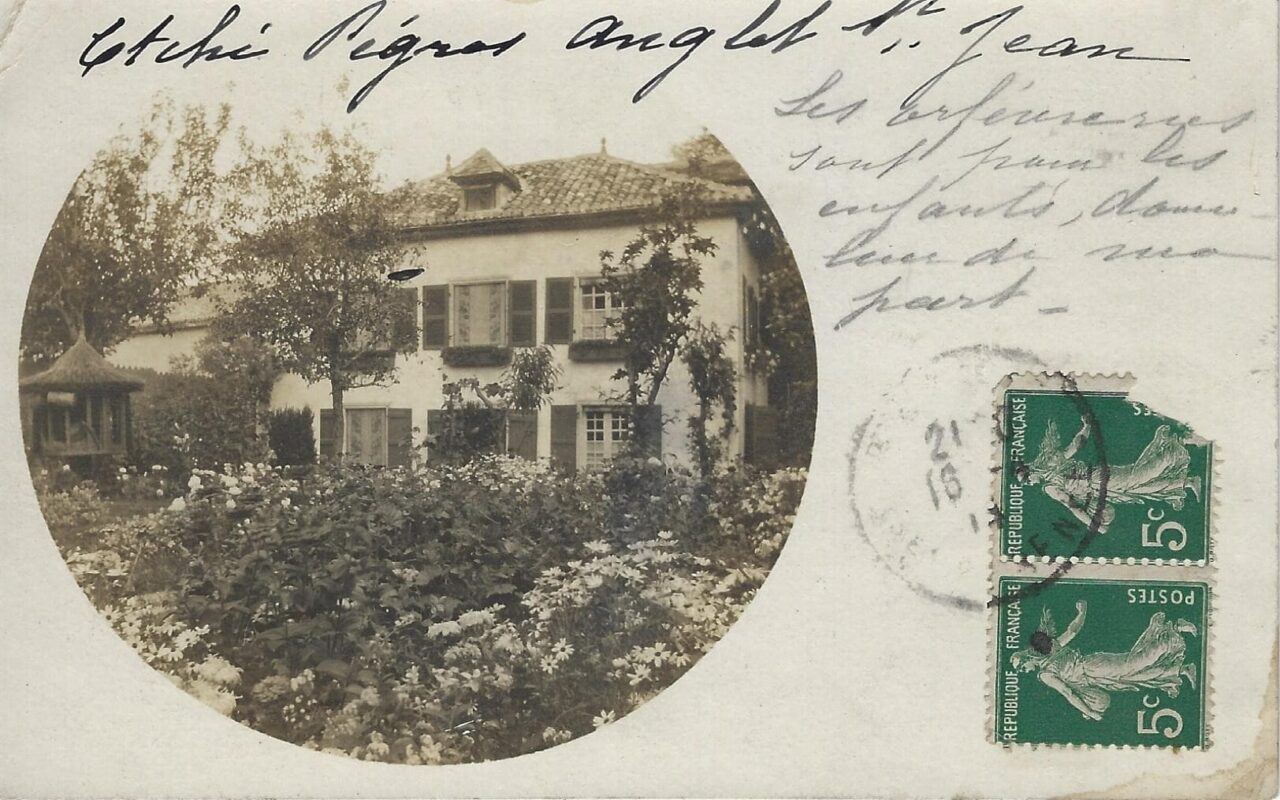 Etchi Pégros Anglet St. Jean
Les orfèvreries
sont pour les
enfants, dou-
leur de ma
part -
RÉPUBLIQUE FRANÇAISE
5c
RÉPUBLIQUE FRANÇAISE
POSTES
5c
21